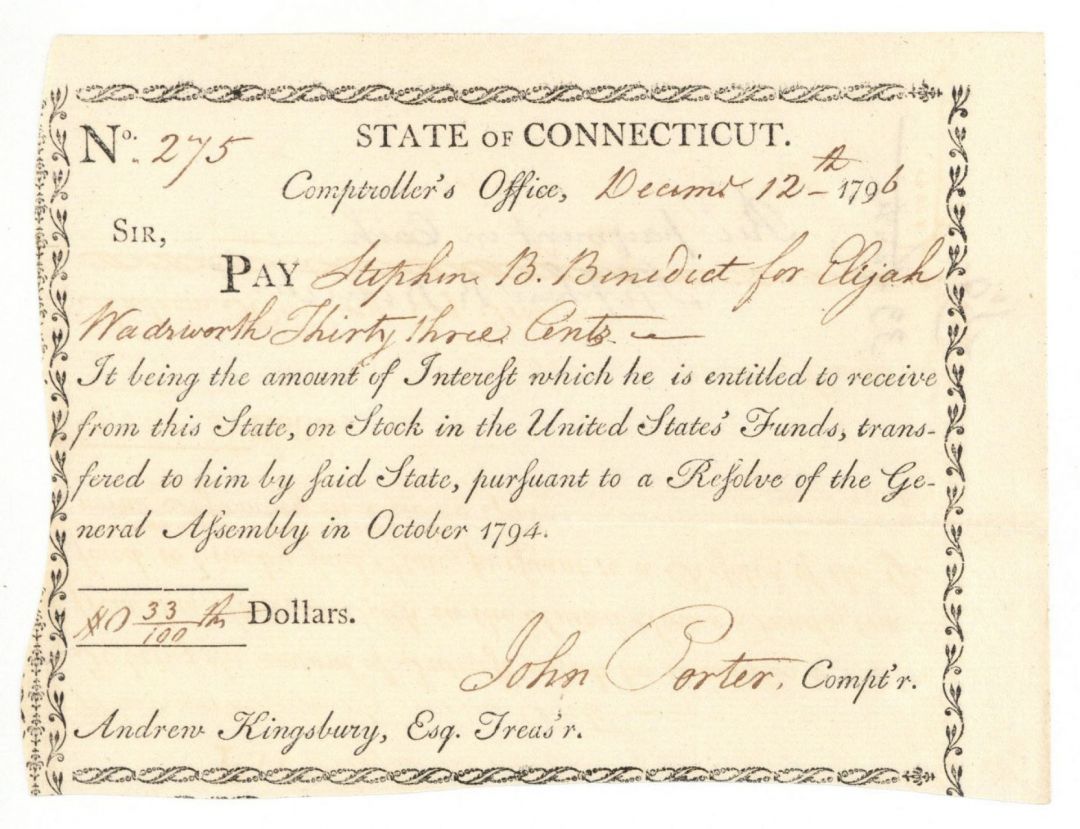 No. 275
STATE OF CONNECTICUT.
Comptroller's Office, Decemr 12th 1796
SIR,
PAY Stephen B. Benedict for Elijah
Wadsworth Thirty three Cents
It being the amount of Intereſt which he is entitled to receive
from this State, on Stock in the United States' Funds, trans-
fered to him by ſaid State, purſuant to a Reſolve of the Ge-
neral Aſſembly in October 1794.
$0 33/100 th Dollars.
John Porter, Compt'r.
Andrew Kingsbury, Esq. Treas'r.